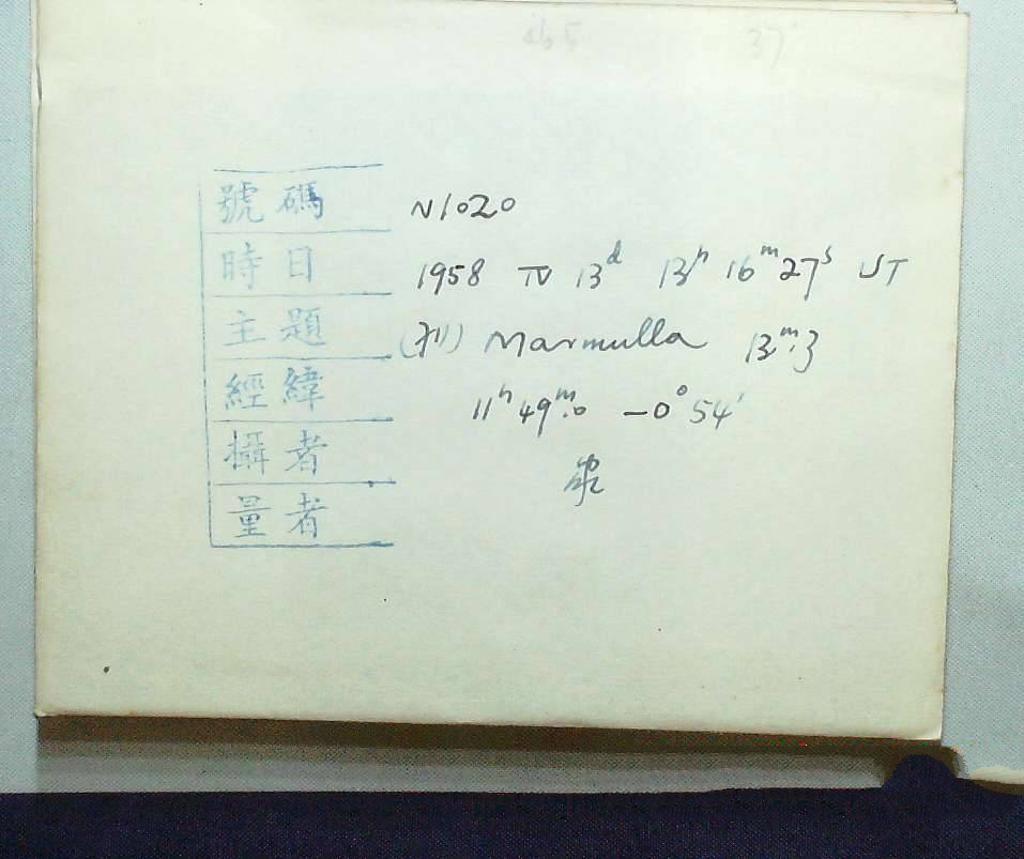 37
號碼 N1020
時日 1958 IV 13ᵈ 13ʰ 16ᵐ 27ˢ UT
主題 Marmulla 13ᵐ.3
經緯 11ʰ 49ᵐ.0 −0° 54′
攝者
量者